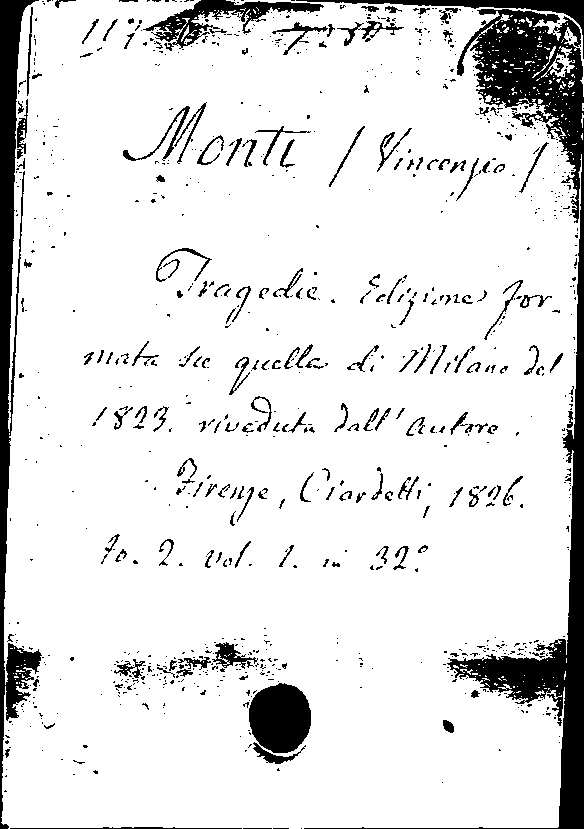 117.
Monti / Vincenzio. /
Tragedie. Edizione for-
mata su quella di Milano del
1823. riveduta dall' autore.
Firenze, Ciardetti, 1826.
to. 2. vol. 1. in 32.º